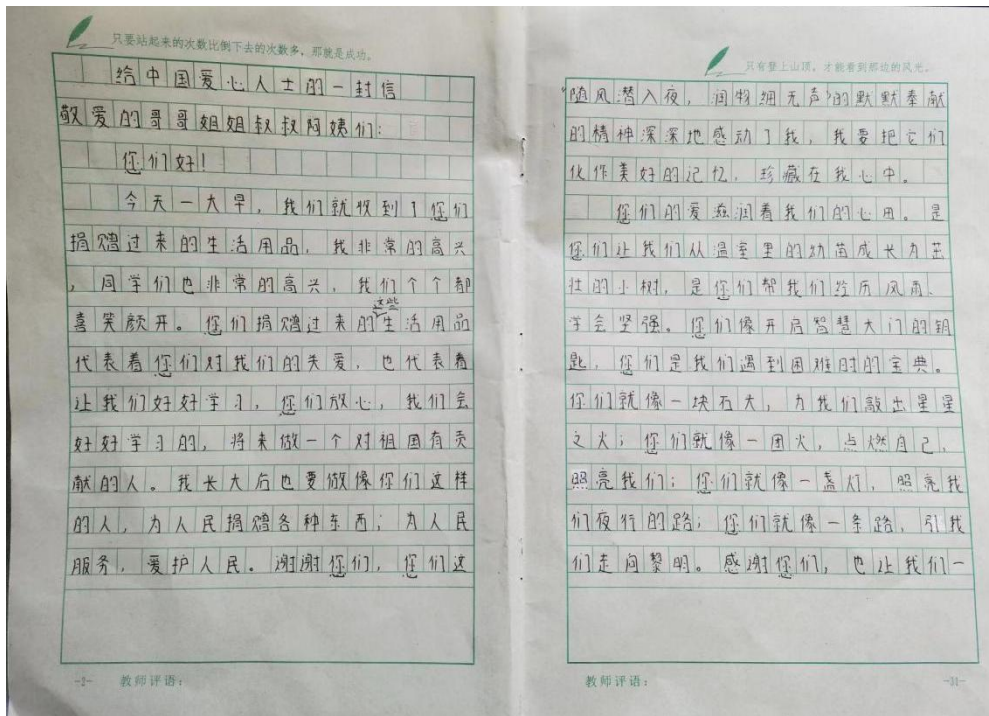 只要站起来的次数比倒下去的次数多，那就是成功。
给中国爱心人士的一封信
敬爱的哥哥姐姐叔叔阿姨们：
您们好！
今天一大早，我们就收到了您们
捐赠过来的生活用品，我非常的高兴
，同学们也非常的高兴，我们个个都
喜笑颜开。您们捐赠过来的这些生活用品
代表着您们对我们的关爱，也代表着
让我们好好学习，您们放心，我们会
好好学习的，将来做一个对祖国有贡
献的人。我长大后也要做像你们这样
的人，为人民捐赠各种东西；为人民
服务，爱护人民。谢谢您们，您们这
-2- 教师评语：
只有登上山顶，才能看到那边的风光。
“随风潜入夜，润物细无声”的默默奉献
的精神深深地感动了我，我要把它们
化作美好的记忆，珍藏在我心中。
您们的爱滋润着我们的心田。是
您们让我们从温室里的幼苗成长为茁
壮的小树，是您们帮我们经历风雨、
学会坚强。您们像开启智慧大门的钥
匙，您们是我们遇到困难时的宝典。
你们就像一块石火，为我们敲出星星
之火；您们就像一团火，点燃自己，
照亮我们；您们就像一盏灯，照亮我
们夜行的路；您们就像一条路，引我
们走向黎明。感谢您们，也让我们一
教师评语：